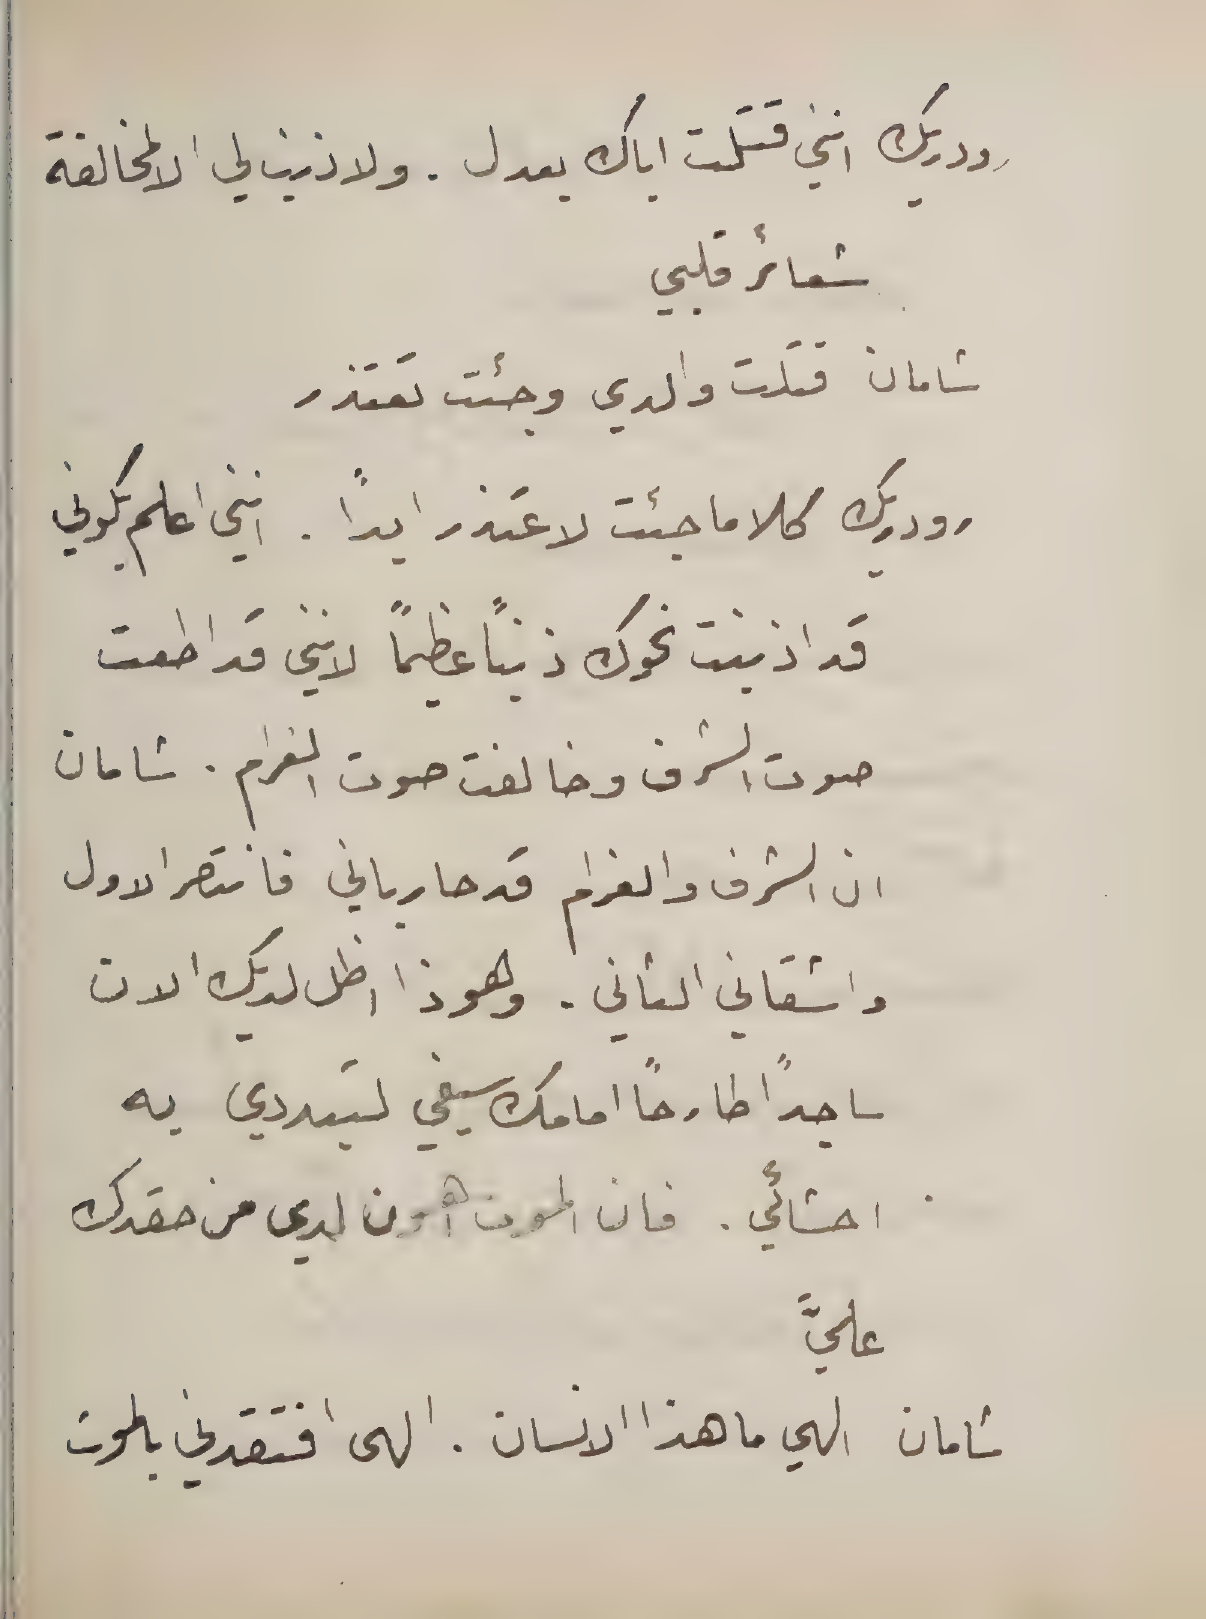 رودريك انني قتلت اباك بعدل . ولا ذنب لي الا لمخالفة
شعائر قلبي
شامان قتلت والدي وجئت تعتذر
رودريك كلا ما جئت لاعتذر ابدًا . انني اعلم بكوني
قد اذنبت نحوك ذنبًا عظيمًا لانني قد اطعت
صوت الشرف وخالفت صوت الغرام . شامان
ان الشرف والغرام قد حارباني فانتصر الاول
واشقاني الثاني . وهوذا اظل لديك الان
ساجدًا طارحًا امامك سيفي لتبددي به
احشائي . فان الموت اهون لدي من حقدك
عليَّ
شامان الهي ما هذا الانسان . الهي افتقدني بالموت